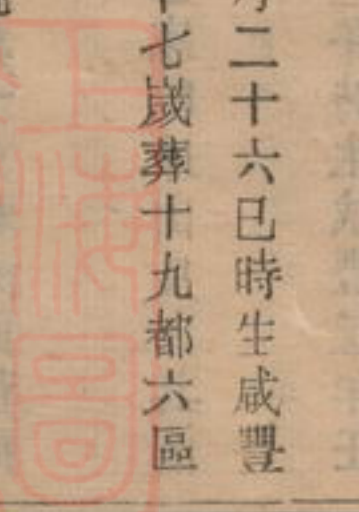 二十六巳時生咸豐
七歲葬十九都六區
上海圖